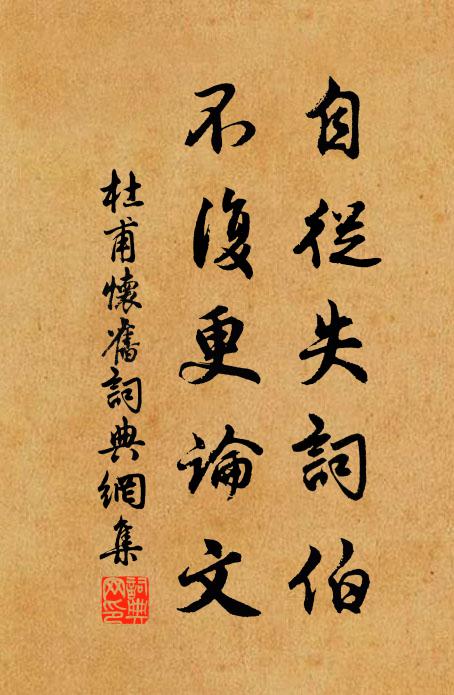 自從失詞伯
不復更論文
杜甫懷舊詞典網集
詞典網印